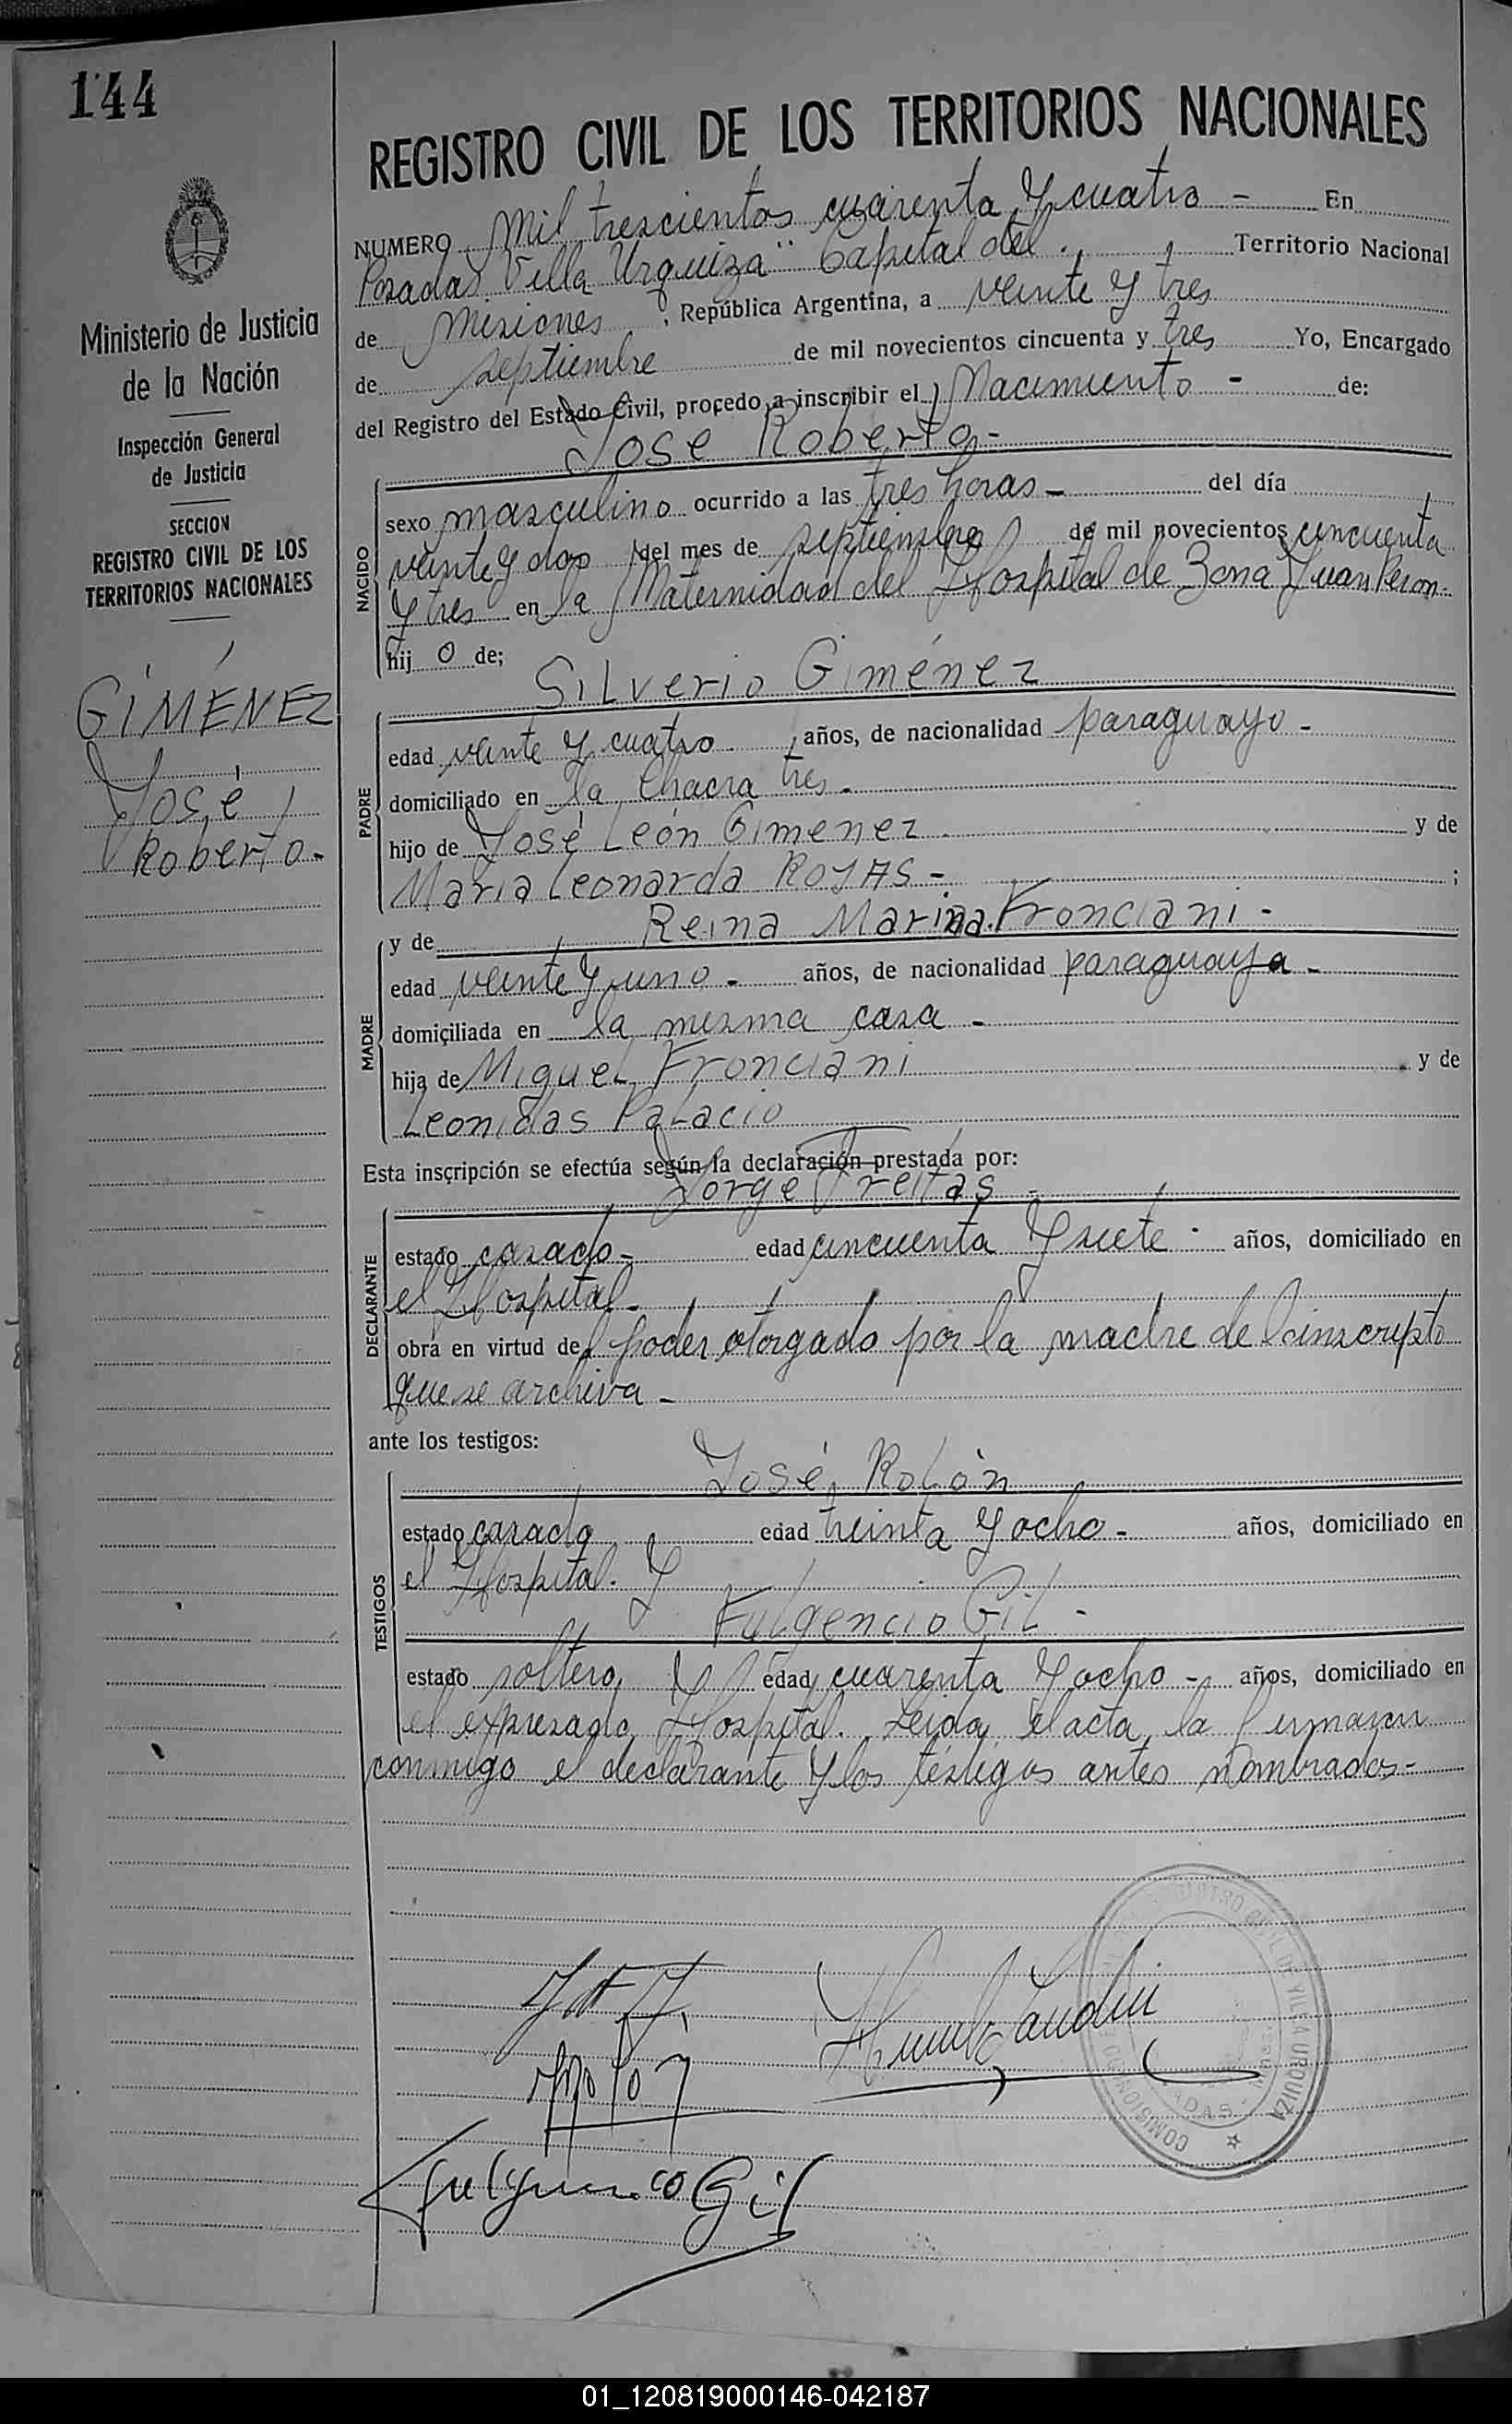 144
Ministerio de Justicia
de la Nación
Inspección General
de Justicia
SECCION
REGISTRO CIVIL DE LOS
TERRITORIOS NACIONALES
GIMÉNEZ
José
Roberto.-
REGISTRO CIVIL DE LOS TERRITORIOS NACIONALES
NUMERO Mil trescientos cuarenta y cuatro - En
Posadas "Villa Urquiza" Capital del Territorio Nacional
de Misiones, República Argentina, a veinte y tres
de septiembre de mil novecientos cincuenta y tres Yo, Encargado
del Registro del Estado Civil, procedo a inscribir el Nacimiento - de:
José Roberto.-
NACIDO
sexo masculino ocurrido a las tres horas - del día
veinte y dos del mes de septiembre de mil novecientos cincuenta
y tres en la Maternidad del Hospital de Zona Juan Perón.-
hij o de;
Silverio Giménez
PADRE
edad veinte y cuatro años, de nacionalidad paraguayo -
domiciliado en la Chacra tres.
hijo de José León Gimenez y de
María Leonarda Rojas - ;
y de Reina Marina Fronciani -
MADRE
edad veinte y uno - años, de nacionalidad paraguaya -
domiciliada en la misma casa -
hija de Miguel Fronciani y de
Leonidas Palacio
Esta inscripción se efectúa según la declaración prestada por:
Jorge Freitas -
DECLARANTE
estado casado - edad cincuenta y siete - años, domiciliado en
el Hospital -
obra en virtud del poder otorgado por la madre del inscripto
que se archiva -
ante los testigos:
José Rolón
TESTIGOS
estado casado edad treinta y ocho - años, domiciliado en
el Hospital. Y
Fulgencio Gil -
estado soltero edad cuarenta y ocho - años, domiciliado en
el expresado Hospital. Leida el acta, la firmaron
conmigo el declarante y los testigos antes nombrados -
Fulgencio Gil
REGISTRO CIVIL DE VILLA URQUIZA
01_120819000146-042187